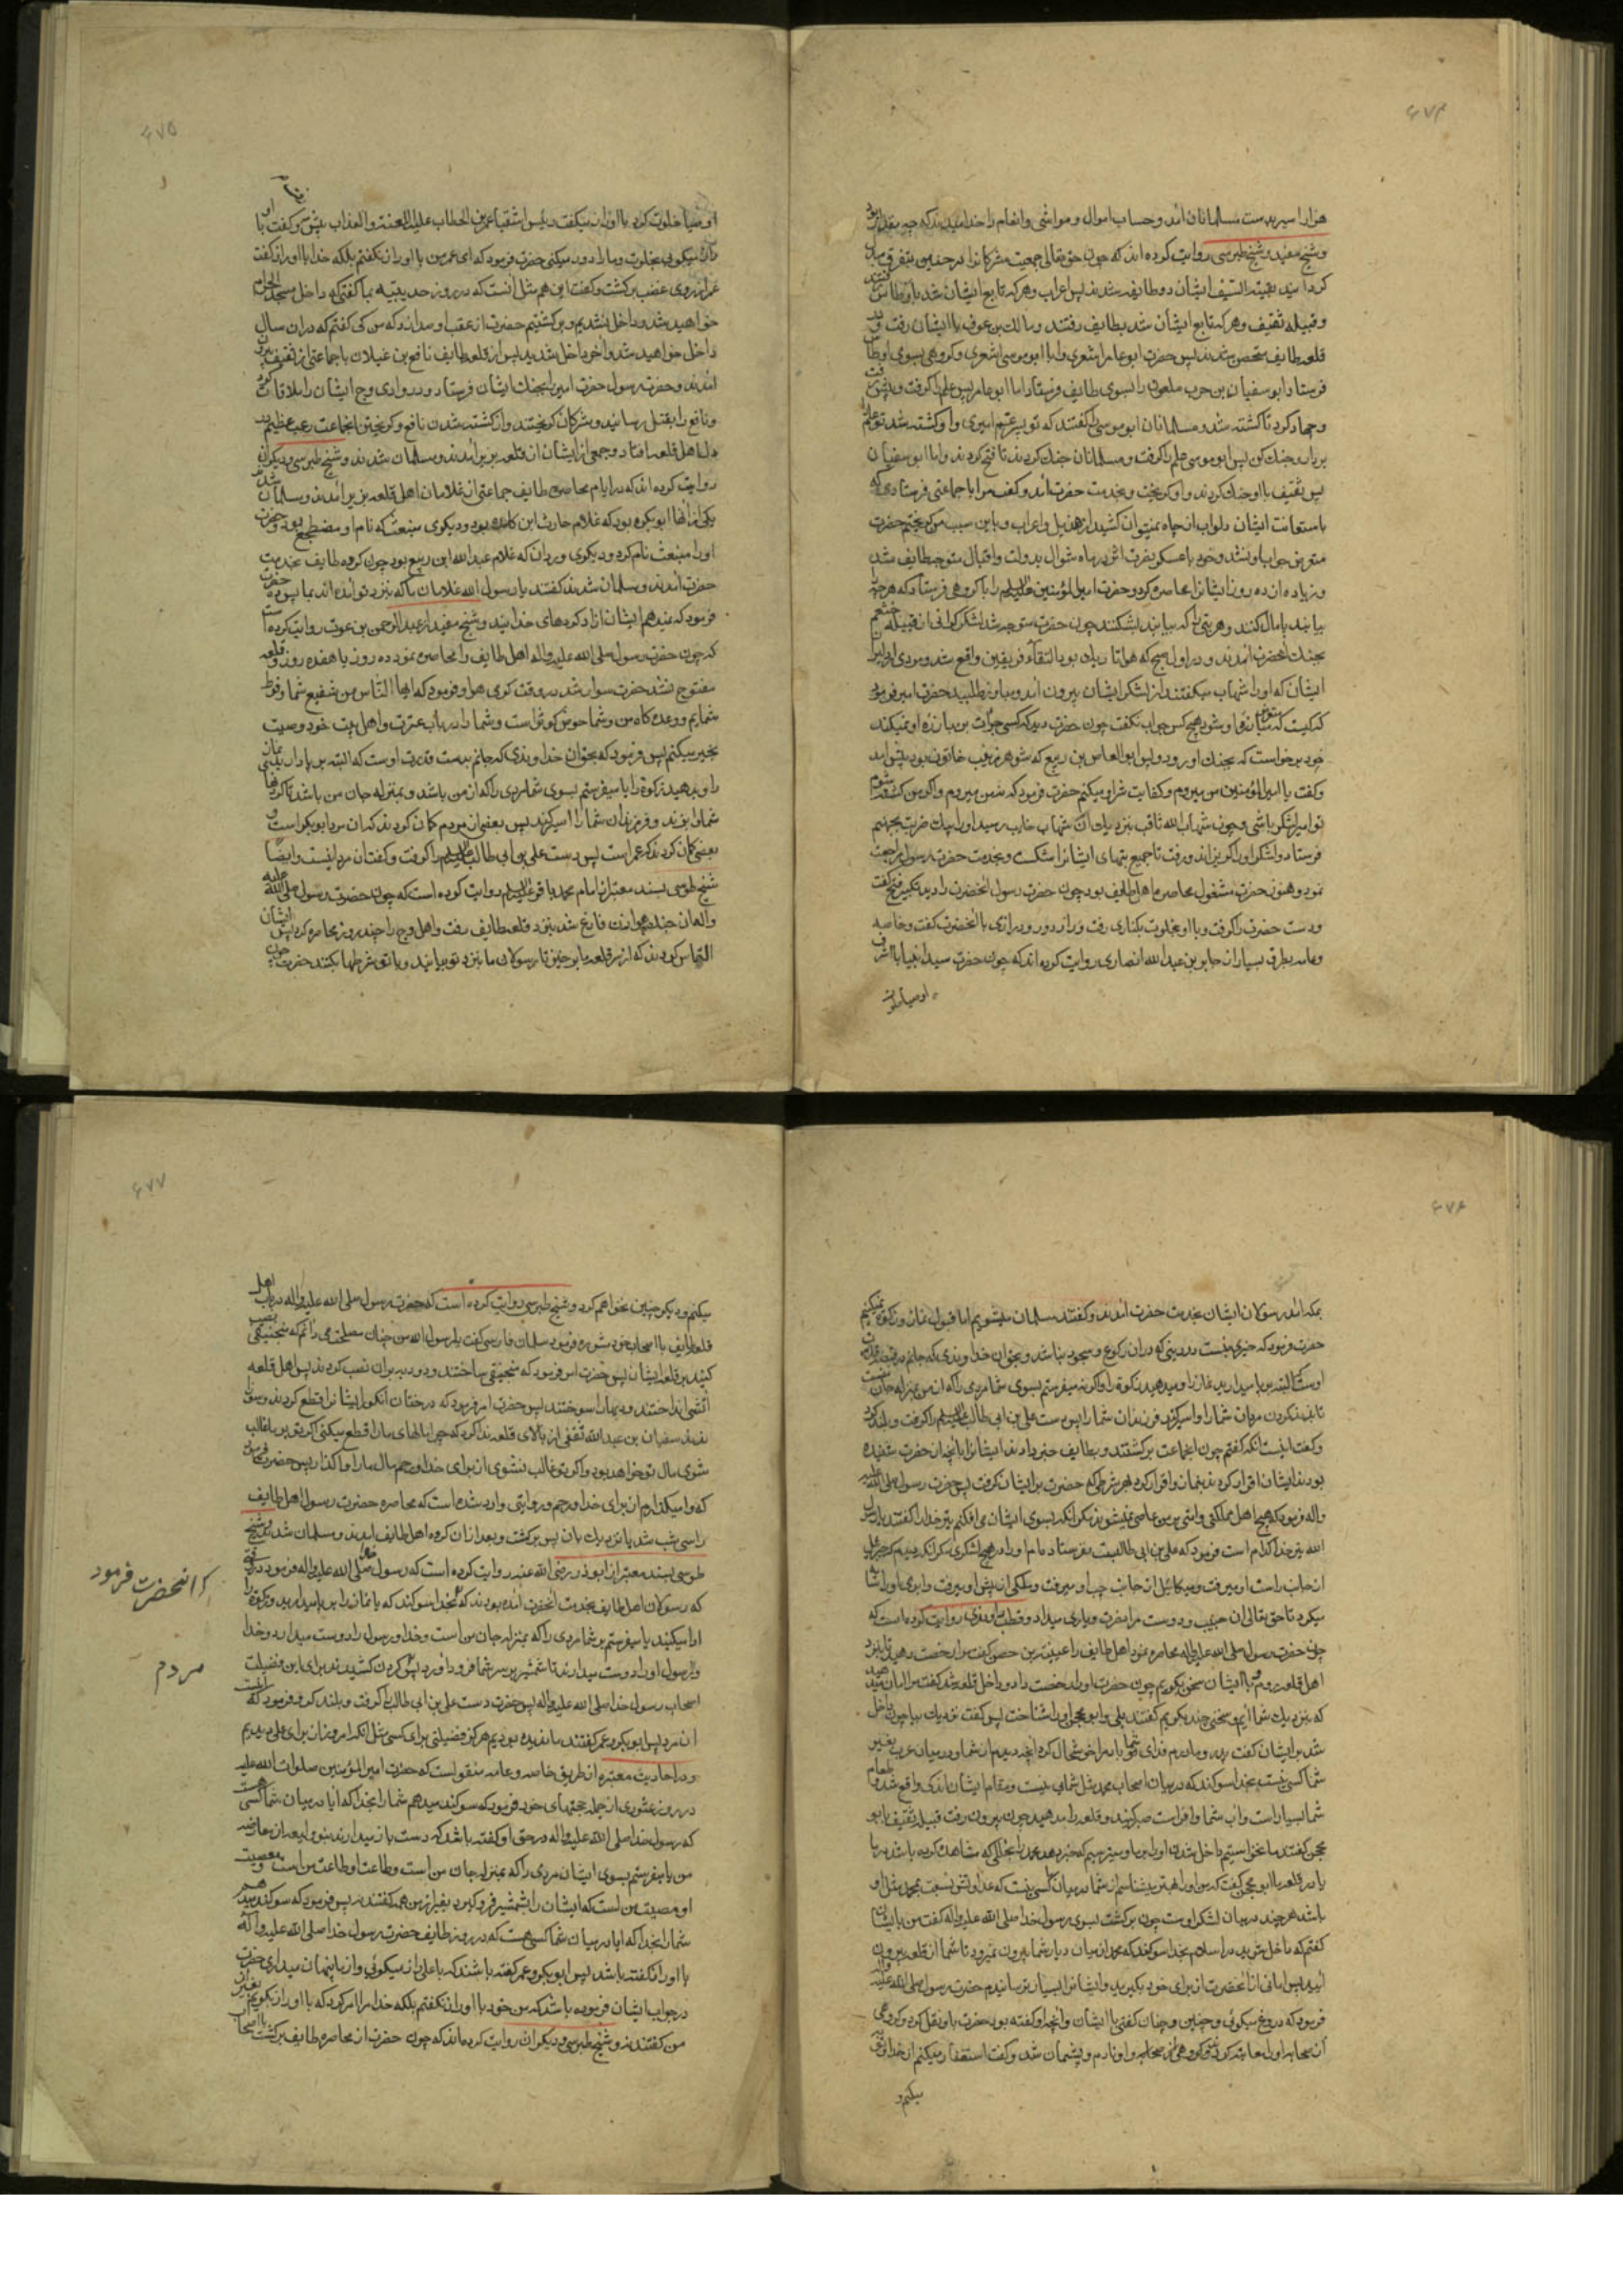 ۶۷۴
هزار اسیر بدست مسلمانان آمد و حساب اموال و مواشی و انعام را خدا میداند که چه بقدر بود
و شیخ مفید و شیخ طبرسی روایت کرده اند که چون حق تعالی جمعیت مشرکانرا در حنین متفرق
کردانید بقیة السیف ایشان دو طایفه شدند پس اعراب و هر که تابع ایشان شد باوطاس رفتند
و قبیله ثقیف و هر که تابع ایشان شد بطایف رفتند و مالک بن عوف با ایشان رفت و در
قلعه طایف متحصن شدند پس حضرت ابو عامر اشعری را با ابو موسی اشعری و کروهی بسوی اوطاس
فرستاد و ابو سفیان بن حرب ملعون را بسوی طایف فرستاد اما ابو عامر پس علم را کرفت و پیش رفت
و جهاد کرد تا کشته شد و مسلمانان ابو موسی را کفتند که تو پسر عم امیری و او کشته شد تو علم را
بردار و جنک کن پس ابو موسی علم را کرفت و مسلمانان جنک کردند تا فتح کردند و اما ابو سفیان
پس ثقیف با او جنک کردند و او کریخت و بخدمت حضرت آمد و کفت مرا با جماعتی فرستادی که
باستعانت ایشان دلو از چاه نمیتوان کشید از هذیل و اعراب و باین سبب من کریختم حضرت
متعرض جواب او نشد و خود با عسکر نصرت اثر در ماه شوال بدولت و اقبال متوجه طایف شد
و زیاده از ده روز ایشانرا محاصره کرد و حضرت امیر المؤمنین علیه السلام را با کروهی فرستاد که هر چه
بیابند پامال کنند و هر بتی را که بیابند بشکنند چون حضرت متوجه شد لشکر کرانی از قبیله خثعم
بجنک انحضرت آمدند و در اول صبح که هوا تاریک بود التقاء فریقین واقع شد و مردی از دلیران
ایشان که او را شهاب میکفتند از لشکر ایشان بیرون آمد و مبارز طلبید حضرت امیر فرمود
که کیست که متوجه او شود هیچ کس جواب نکفت چون حضرت دید که کسی جرأت بر مبارزه او نمیکند
خود برخواست که بجنک او رود پس ابو العاص بن ربیع که شوهر زینب خاتون بود پیش آمد
و کفت یا امیر المؤمنین من میروم و کفایت شر او میکنم حضرت فرمود که نه من میروم و اکر من کشته شوم
تو امیر لشکر باشی و چون شهاب الله ثاقب نزدیک آن شهاب خایب رسید او را بیک ضربت بجهنم
فرستاد و لشکر او را کریزاند و رفت تا جمیع بتهای ایشانرا شکست و بخدمت حضرت رسول مراجعت
نمود و هنوز حضرت مشغول محاصره اهل طایف بود چون حضرت رسول انحضرت را دید تکبیر فتح کفت
و دست حضرت را کرفت و با او بخلوت بکناری رفت و راز دور و درازی با انحضرت کفت و خاصه
و عامه بطرق بسیار از جابر بن عبد الله انصاری روایت کرده اند که چون حضرت سید انبیا با اشرف
اوصیا خلوت
۶۷۵
اوصیا خلوت کرد با او راز میکفت رئیس اشقیا عمر بن الخطاب علیه اللعنة و العذاب پیش و کفت با او
راز میکوئی بخلوت و ما را دور میکنی حضرت فرمود که ای عمر من با او راز نکفتم بلکه خدا با او راز کفت
عمر از روی غضب برکشت و کفت این هم مثل آنست که در روز حدیبیه بما کفتی که داخل مسجد الحرام
خواهید شد و داخل نشدیم و برکشتیم حضرت از عقب او صدا زد که من کی کفتم که در آن سال
داخل خواهید شد و آخر داخل شدید پس از قلعه طایف نافع بن غیلان با جماعتی از ثقیف بیرون
آمدند و حضرت رسول حضرت امیر را بجنک ایشان فرستاد و در وادی وج ایشان را ملاقات
و نافع را بقتل رسانید و مشرکان کریختند و از کشته شدن نافع و کریختن انجماعت رعب عظیم در
دل اهل قلعه افتاد و جمعی از ایشان از قلعه بزیر آمدند و مسلمان شدند و شیخ طبرسی و دیکران
روایت کرده اند که در ایام محاصره طایف جماعتی از غلامان اهل قلعه بزیر آمدند و مسلمان شدند
یکی از آنها ابو بکره بود که غلام حارث ابن کلده بود و دیکری منبعث که نام او مضطجع بود و حضرت
او را منبعث نام کرد و دیکری وردان که غلام عبد الله ابن ربیع بود چون کروه طایف بخدمت
حضرت آمدند و مسلمان شدند کفتند یا رسول الله غلامان ما که بنزد تو آمده اند بما پس ده حضرت
فرمود که نه ایشان آزاد کردهای خدایند و شیخ مفید از عبد الرحمن بن عوف روایت کرده است
که چون حضرت رسول صلی الله علیه و اله اهل طایف را محاصره نمود ده روز یا هفده روز و قلعه
مفتوح نشد حضرت سوار شد در وقت کرمی هوا و فرمود که ایها الناس من شفیع شما و فرط
شمایم و وعده کاه من و شما حوض کوثر است و شما را در باب عترت و اهل بیت خود وصیت
بخیر میکنم پس فرمود که بحق آن خداوندی که جانم بدست قدرت اوست که البته بر پا دارید نماز
را و بدهید زکوة را یا میفرستم بسوی شما مردی را که از من باشد و بمنزله جان من باشد تا کردنهای
شما را بزند و فرزندان شما را اسیر کند پس بعضی از مردم کمان کردند که آن مرد ابو بکر است و
بعضی کمان کردند که عمر است پس دست علی بن ابی طالب علیه السلام را کرفت و کفت آن مرد اینست و ایضا
شیخ طوسی بسند معتبر از امام محمد باقر علیه السلام روایت کرده است که چون حضرت رسول صلی الله علیه
و اله از جنک هوازن فارغ شد بنزد قلعه طایف رفت و اهل وج را چند روز محاصره کرد پس ایشان
التماس کردند که از سر قلعه ما برخیز تا رسولان ما بنزد تو بیایند و با تو شرطها بکنند حضرت چون
۶۷۶
بمکه آمد رسولان ایشان بخدمت حضرت آمدند و کفتند مسلمان میشویم اما قبول نماز و زکوة نمیکنیم
حضرت فرمود که خیری نیست در دینی که در آن رکوع و سجود نباشد و بحق آن خداوندی که جانم در قبضه قدرت
اوست که البته بر پا میدارید نماز را و میدهید زکوة را و اکر نه میفرستم بسوی شما مردی را که از من بمنزله جان منست
تا بزند کردن مردان شما را و اسیر کند فرزندان شما را پس دست علی بن ابی طالب علیه السلام را کرفت و بلند کرد
و کفت اینست آنکه کفتم چون انجماعت برکشتند و بطایف خبر دادند ایشانرا بآنچه از حضرت شنیده
بودند ایشان اقرار کردند بنماز و اقرار کردند بهر شرطی که حضرت بر ایشان کرفت پس حضرت رسول صلی الله علیه
و اله فرمود که هیچ اهل مملکتی و امتی بر من عاصی نمیشوند مکر آنکه بسوی ایشان می افکنم تیر خدا را کفتند یا رسول
الله تیر خدا کدام است فرمود که علی بن ابی طالبست نفرستادم او را در هیچ لشکری مکر آنکه دیدم که جبرئیل
از جانب راست او میرفت و میکائیل از جانب چپ او میرفت و ملکی از پیش او میرفت و ابری او را سایه
میکرد تا حق تعالی آن حبیب و دوست مرا نصرت و یاری میداد و قطب راوندی روایت کرده است که
چون حضرت رسول صلی الله علیه و اله محاصره نمود اهل طایف را عیینة بن حصن کفت مرا رخصت دهید تا بنزد
اهل قلعه روم و با ایشان سخن بکویم چون حضرت او را رخصت داد و داخل قلعه شد کفت مرا امان میدهید
که بنزدیک شما آیم و سخنی چند بکویم کفتند بلی و ابو محجن او را شناخت پس کفت نزدیک بیا چون داخل
شد بر ایشان کفت پدر و مادرم فدای شما باد مرا خوشحال کرد آنچه دیدم از شما و در میان عرب بغیر
شما کسی نیست بخدا سوکند که در میان اصحاب محمد مثل شمائی نیست و مقام ایشان اندکی واقع شد و طعام
شما بسیار است و آب شما وافر است صبر کنید و قلعه را مدهید چون بیرون رفت قبیله ثقیف بابو
محجن کفتند ما نخواستیم داخل شدن او را بر ما و میترسیم که خبر دهد محمد را بخللی که مشاهده کرده باشد در ما
یا در قلعه ما ابو محجن کفت که من او را بهتر میشناسم از شما در میان ما کسی نیست که عداوتش نسبت بمحمد مثل او
باشد هر چند در میان لشکر اوست چون برکشت بسوی رسول خدا صلی الله علیه و اله کفت من بایشان
کفتم که داخل شوید در اسلام بخدا سوکند که محمد از میان دیار شما بیرون نمیرود تا شما از قلعه بیرون
آئید پس امانی از انحضرت از برای خود بکیرید و ایشانرا بسیار ترسانیدم حضرت رسول صلی الله علیه و اله
فرمود که دروغ میکوئی و چنین و چنان کفتی با ایشان و آنچه او کفته بود حضرت باو نقل کرد و کروهی
از صحابه او را معاتبه کردند و او نادم و پشیمان شد و کفت استغفار میکنم از خدا و توبه
میکنم و
۶۷۷
میکنم و دیکر چنین نخواهم کرد و شیخ طبرسی روایت کرده است که حضرت رسول صلی الله علیه و اله در باب اهل
قلعه طایف با اصحاب خود مشوره فرمود سلمان فارسی کفت یا رسول الله من چنان مصلحت می دانم که منجنیقی نصب
کنید بر قلعه ایشان پس حضرت امر فرمود که منجنیقی ساختند و دو دبابه بر آن نصب کردند پس اهل قلعه
آتشی انداختند و دبابه را سوختند پس حضرت امر فرمود که درختان انکور ایشانرا قطع کردند و سوختند
پس سفیان بن عبد الله ثقفی از بالای قلعه ندا کرد که چرا مالهای ما را قطع میکنی اکر تو بر ما غالب
شوی مال تو خواهد بود و اکر تو غالب نشوی از برای خدا و رحم مال ما را واکذار پس حضرت فرمود
که وا میکذارم از برای خدا و رحم و روایتی وارد شده است که محاصره حضرت رسول اهل طایف
را سی شب شد یا نزدیک بآن پس برکشت و بعد از آن کروه اهل طایف آمدند و مسلمان شدند و شیخ
طوسی بسند معتبر از ابو ذر رضی الله عنه روایت کرده است که رسول خدا صلی الله علیه و اله فرمود در وقتی
که رسولان اهل طایف بخدمت انحضرت آمده بودند که بخدا سوکند که یا نماز را بر پا میدارید و زکوة را
ادا میکنید یا میفرستم بر شما مردی را که بمنزله جان من است و خدا و رسول را دوست میدارد و خدا
و رسول او را دوست میدارند تا شمشیر بر سر شما فرود آورد پس کردن کشیدند برای این فضیلت
اصحاب رسول خدا صلی الله علیه و اله پس حضرت دست علی بن ابی طالب را کرفت و بلند کرد و فرمود که اینست
آن مرد پس ابو بکر و عمر کفتند ما ندیده بودیم هرکز فضیلتی برای کسی مثل آنکه امروز از برای علی دیدیم
و در احادیث معتبره از طریق خاصه و عامه منقولست که حضرت امیر المؤمنین صلوات الله علیه
در روز شوری از جمله حجتهای خود فرمود که سوکند میدهم شما را بخدا که آیا در میان شما کسی هست
که رسول خدا صلی الله علیه و اله در حق او کفته باشد که دست باز میدارند بنو ولیعه از معارضه
من یا میفرستم بسوی ایشان مردی را که بمنزله جان من است و طاعت او طاعت من است و معصیت
او معصیت من است که ایشان را بشمشیر فرو کیرد بغیر از من همه کفتند نه پس فرمود که سوکند میدهم
شما را بخدا که آیا در میان شما کسی هست که در روز طایف حضرت رسول خدا صلی الله علیه و اله
با او راز کفته باشد پس ابو بکر و عمر کفته باشند که با علی راز میکوئی و از ما پنهان میداری حضرت
در جواب ایشان فرموده باشد که من خود با او راز نکفتم بلکه خدا مرا امر کرد که با او راز بکویم بغیر از
من کفتند نه و شیخ طبرسی و دیکران روایت کرده اند که چون حضرت از محاصره طایف برکشت با اصحاب
انحضرت فرمود
مردم